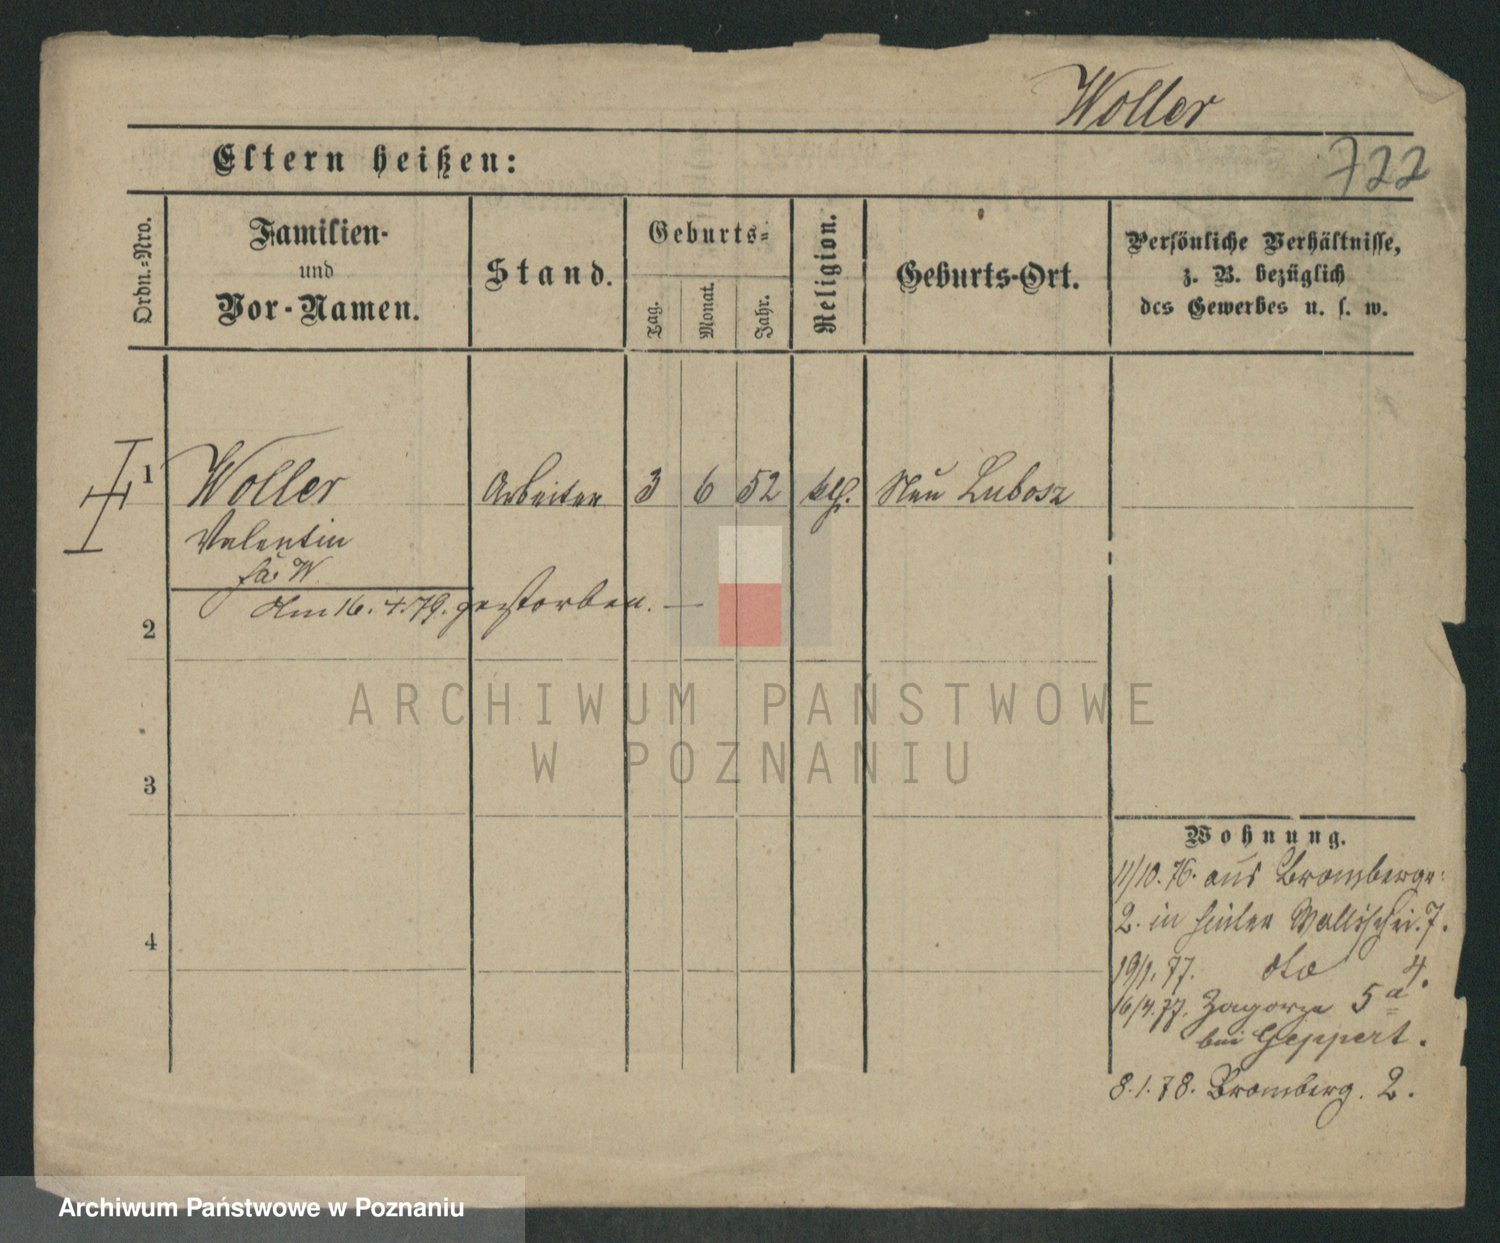 Woller
722
Eltern heißen:
Ordn.-Nro.
Familien-
und
Vor-Namen.
Stand.
Geburts-
Tag.
Monat.
Jahr.
Religion.
Geburts-Ort.
Persönliche Verhältnisse,
z. B. bezüglich
des Gewerbes u. s. w.
1
Woller
Arbeiter
3
6
52
kth.
Neu Lubosz
Valentin
Am 16. 4. 79. gestorben. —
2
ARCHIWUM PAŃSTWOWE
W POZNANIU
3
Wohnung.
11/10. 76. aus Bromberger
2. in hinter Wallischei. 7.
19/1. 77. dto 4.
16/4. 77. Zagorze 5 a
bei Geppert.
8. 1. 78. Bromberg. 2.
4
Archiwum Państwowe w Poznaniu